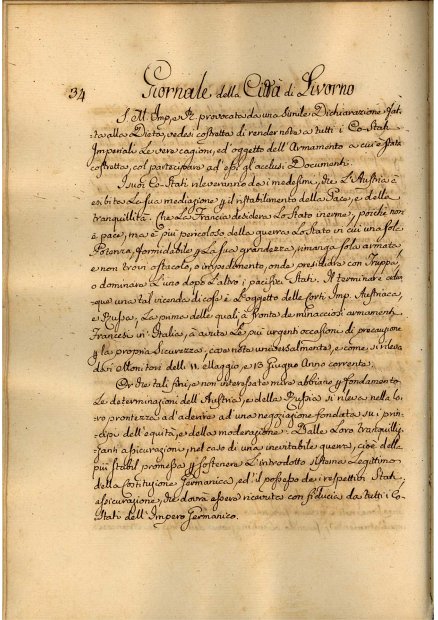 34 Giornale della Città di Livorno
S. M. Imp. a R. provocata da una simile Dichiarazione fat-
ta alla Dieta, vedesi costretta di render note a tutti i Co-Stati
Imperiali le vere cagioni, ed oggetto dell'Armamento a cui è stata
costretta, col partecipare ad essi gl'acclusi Documenti.
I suoi Co-Stati rileveranno dai medesimi, che l'Austria è
esibita la sua mediazione p il ristabilimento della Pace, e della
tranquillità. Che la Francia desidera lo stato inerme, poichè non
è pace, ma è più pericoloso della guerra lo Stato in cui una sola
Potenza, formidabile p la sua grandezza, rimanga sola armata
e non trovi ostacolo, o impedimento, onde presidiare con Truppa,
o dominare l'uno dopo l'altro i pacifici Stati. Il terminare adun-
que una tal vicenda di cose è l'oggetto delle Corti Imp. Austriaca,
e Russa. La prima delle quali a fronte de minacciosi armamenti
Francesi in Italia, à avute le più urgenti occasioni di precauzione
p la propria sicurezza, cosa nota universalmente, e come si rileva
dai Monitori dell 11. Maggio, e 13 Giugno Anno corrente.
Or che tali fini, e non interessate mire abbiano p fondamento
le determinazioni dell'Austria, e della Russia si rileva nella lo-
ro prontezza ad aderire ad una negoziazione fondata su i prin-
cipi dell'equità, e della moderazione. Dalle loro tranquilliz-
zanti assicurazioni, nel caso di una inevitabile guerra, cioè dalla
più stabil promessa p sostenere l'introdotto sistema legittimo
della Costituzione Germanica, ed il possesso de respettivi Stati,
assicurazione, che dovrà essere ricevuta con fiducia da tutti i Co-
Stati dell'Impero Germanico.